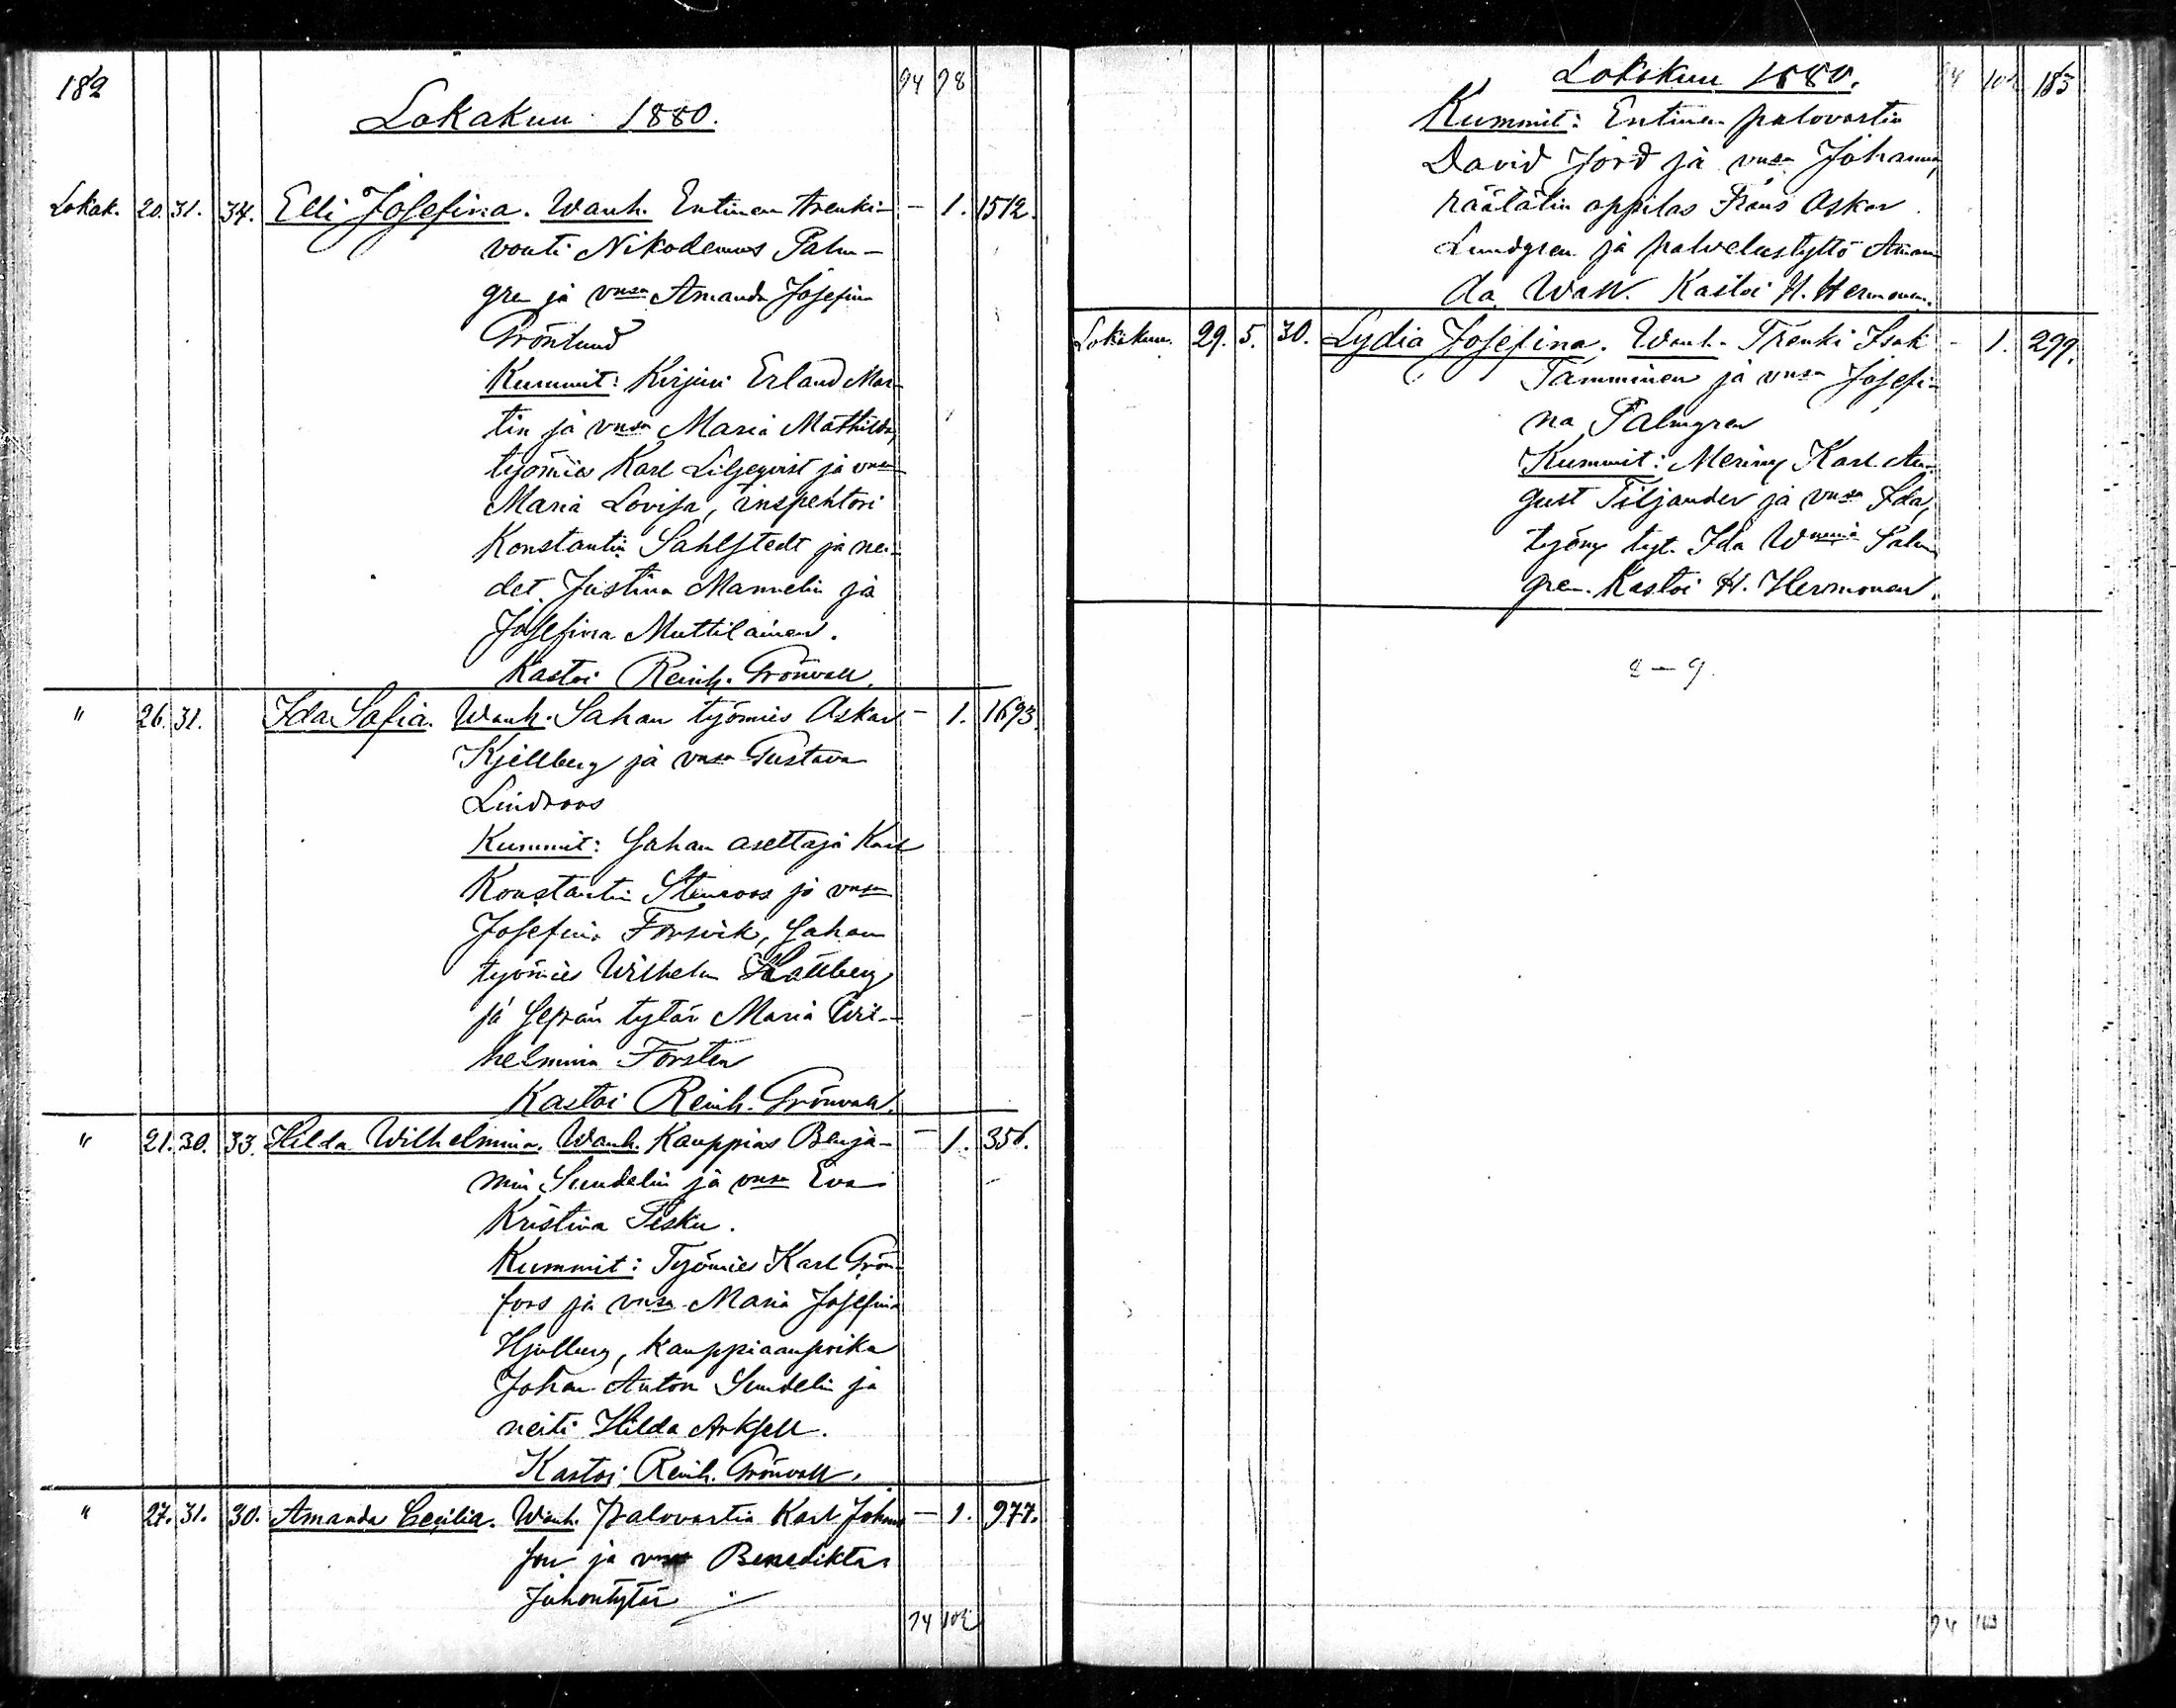 182
94 98
Lokakuu 1880.
Lokak. 20. 31. 34. Elli Josefina. Wanh. Entinen trenki- - 1. 1512.
vouti Nikodemus Palm-
gren ja vmsa Amanda Josefina
Grönlund
Kummit: Kirjuri Erland Mar-
tin ja vmsa Maria Mathilda,
työmies Karl Liljeqvist ja vmsa
Maria Lovisa, inspehtori
Konstantin Sahlstedt ja nei-
det Justina Mannelin ja
Josefina Muttilainen.
Kastoi Reinh. Grönvall.
" 26. 31. Ida Sofia. Wanh. Sahan työmies Oskar - 1. 1693.
Kjellberg ja vmsa Gustava
Lindroos
Kummit: Sahan asettaja Karl
Konstantin Stenroos ja vmsa
Josefina Forsvik, Sahan
työmies Wilhelm Hällberg
ja Sepän tytär Maria Wil-
helmina Forsten
Kastoi Reinh. Grönvall.
" 21. 30. 33. Hilda Wilhelmina. Wanh. Kauppias Benja- - 1. 356.
min Sundelin ja vmsa Eva
Kristina Pesku.
Kummit: Työmies Karl Grön-
foos ja vmsa Maria Josefina
Hjelberg, Kauppiaanpoika
Johan Anton Sundelin ja
neiti Hilda Arksell.
Kastoi Reinh. Grönvall.
" 27. 31. 30. Amanda Cecilia. Wanh. Palovartia Karl Johans- - 1. 977.
son ja vmsa Benedikta
Juhontytär
94 102
Lokakuu 1880.
94 102 183
Kummit: Entinen palovartia
David Jord ja vmsa Johanna,
räätälin oppilas Frans Oskar
Lundgren ja palvelustyttö Aman-
da Wall. Kastoi H. Hermonen.
Lokakuu. 29. 5. 30. Lydia Josefina. Wanh. Trenki Isak - 1. 299.
Tamminen ja vmsa Josefi-
na Palmgren
Kummit: Merim. Karl Au-
gust Siljander ja vmsa Ida,
työm. tyt. Ida W Palm-
gren. Kastoi H. Hermonen.
2 - 9.
94 103